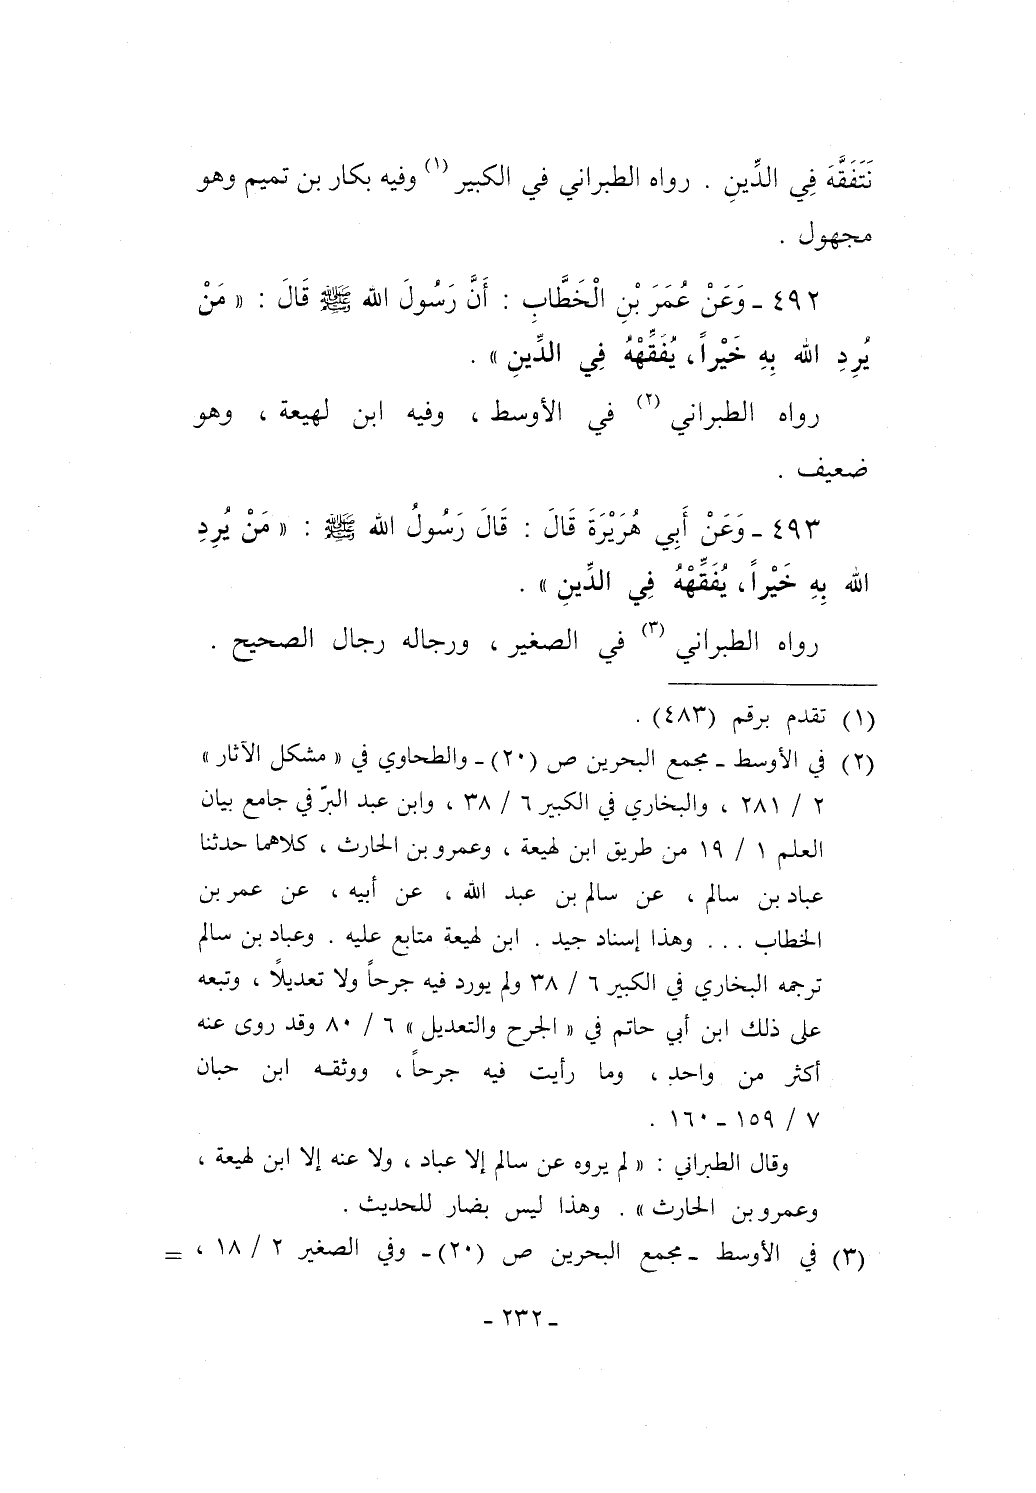 نَتَفَقَّهَ فِي الدِّينِ . رواه الطبراني في الكبير (١) وفيه بكار بن تميم وهو
مجهول .
٤٩٢ - وَعَنْ عُمَرَ بْنِ الْخَطَّابِ : أَنَّ رَسُولَ الله ﷺ قَالَ : « مَنْ
يُرِدِ الله بِهِ خَيْراً ، يُفَقِّهْهُ فِي الدِّينِ » .
رواه الطبراني (٢) في الأوسط ، وفيه ابن لهيعة ، وهو
ضعيف .
٤٩٣ - وَعَنْ أَبِي هُرَيْرَةَ قَالَ : قَالَ رَسُولُ الله ﷺ : « مَنْ يُرِدِ
الله بِهِ خَيْراً ، يُفَقِّهْهُ فِي الدِّينِ » .
رواه الطبراني (٣) في الصغير ، ورجاله رجال الصحيح .
(١) تقدم برقم (٤٨٣) .
(٢) في الأوسط - مجمع البحرين ص (٢٠) - والطحاوي في « مشكل الآثار »
٢ / ٢٨١ ، والبخاري في الكبير ٦ / ٣٨ ، وابن عبد البرّ في جامع بيان
العلم ١ / ١٩ من طريق ابن لهيعة ، وعمرو بن الحارث ، كلاهما حدثنا
عباد بن سالم ، عن سالم بن عبد الله ، عن أبيه ، عن عمر بن
الخطاب ... وهذا إسناد جيد . ابن لهيعة متابع عليه . وعباد بن سالم
ترجمه البخاري في الكبير ٦ / ٣٨ ولم يورد فيه جرحاً ولا تعديلاً ، وتبعه
على ذلك ابن أبي حاتم في « الجرح والتعديل » ٦ / ٨٠ وقد روى عنه
أكثر من واحد ، وما رأيت فيه جرحاً ، ووثقه ابن حبان
٧ / ١٥٩ - ١٦٠ .
وقال الطبراني : « لم يروه عن سالم إلا عباد ، ولا عنه إلا ابن لهيعة ،
وعمرو بن الحارث » . وهذا ليس بضار للحديث .
(٣) في الأوسط - مجمع البحرين ص (٢٠) - وفي الصغير ٢ / ١٨ ، =
- ٢٣٢ -